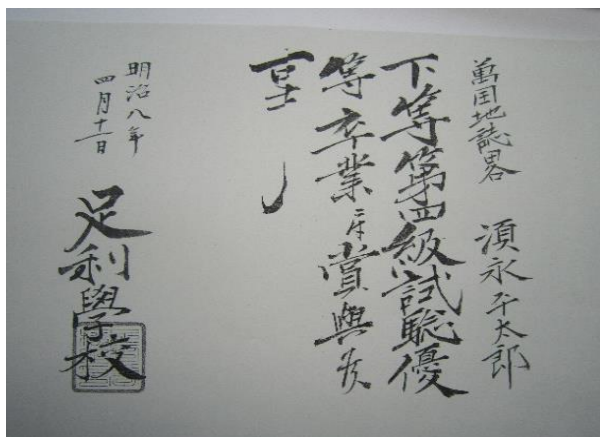 萬国地誌畧　須永平太郎
下等第四級試験優
等卒業ニ付賞與候
事
明治八年
四月十二日
足利學校